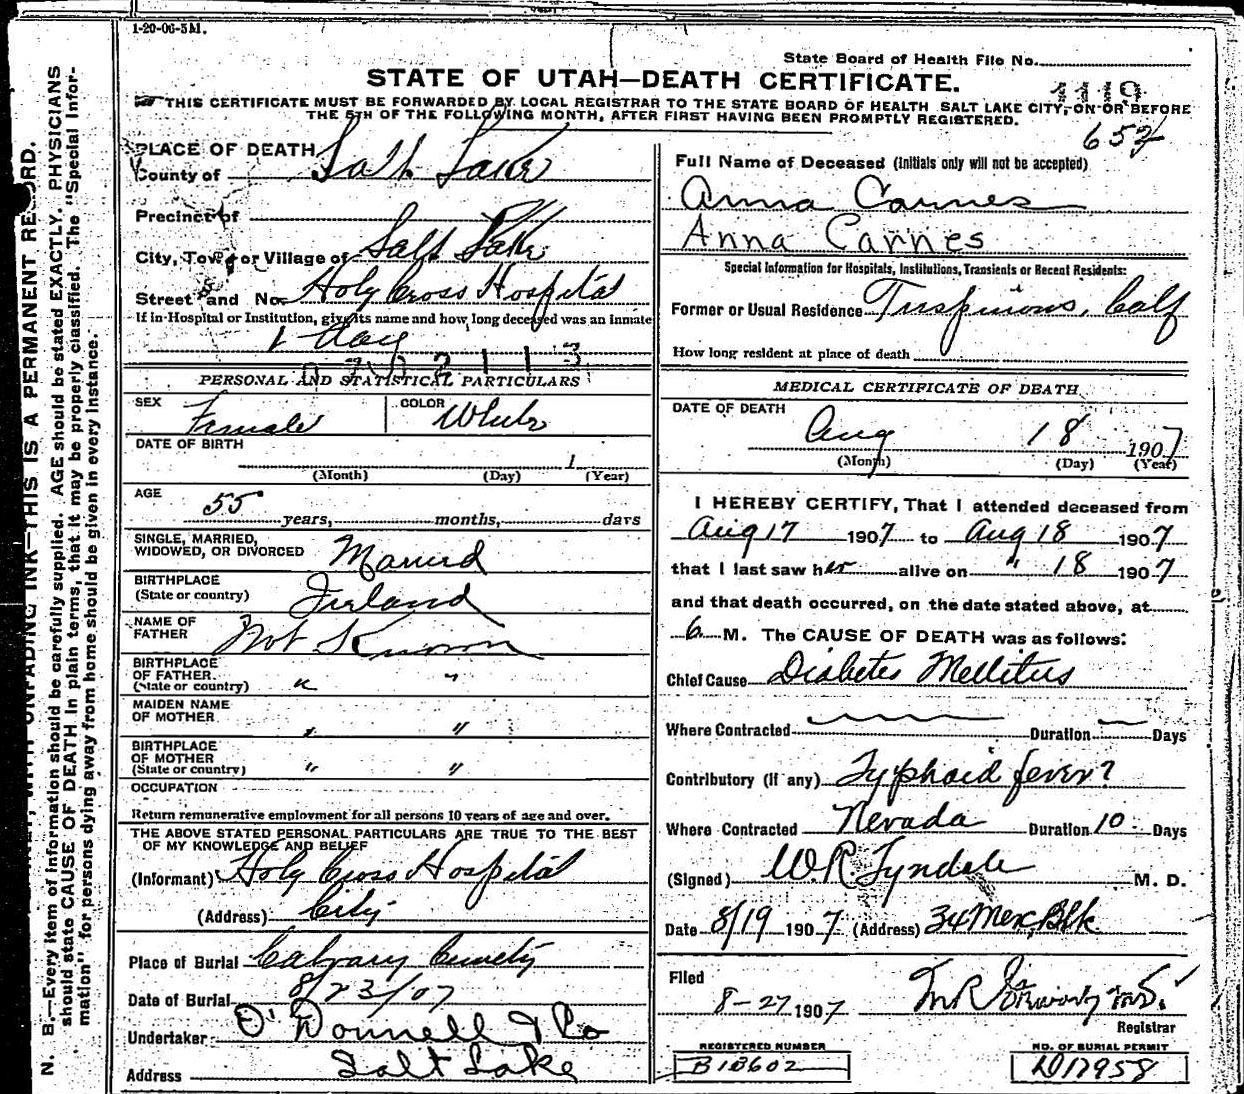 1-20-06-5M.
State Board of Health File No.
STATE OF UTAH—DEATH CERTIFICATE.
THIS CERTIFICATE MUST BE FORWARDED BY LOCAL REGISTRAR TO THE STATE BOARD OF HEALTH SALT LAKE CITY, ON OR BEFORE
THE 5TH OF THE FOLLOWING MONTH, AFTER FIRST HAVING BEEN PROMPTLY REGISTERED.
PLACE OF DEATH
County of Salt Lake
Precinct of
City, Town or Village of Salt Lake
Street and No. Holy Cross Hospital
If in Hospital or Institution, give its name and how long deceased was an inmate
1 day
PERSONAL AND STATISTICAL PARTICULARS
SEX Female COLOR White
DATE OF BIRTH
1
(Month) (Day) (Year)
AGE
55 years, months, days
SINGLE, MARRIED,
WIDOWED, OR DIVORCED Married
BIRTHPLACE
(State or country) Ireland
NAME OF
FATHER Not Known
BIRTHPLACE
OF FATHER
(State or country) " "
MAIDEN NAME
OF MOTHER " "
BIRTHPLACE
OF MOTHER
(State or country) " "
OCCUPATION
Return remunerative employment for all persons 10 years of age and over.
THE ABOVE STATED PERSONAL PARTICULARS ARE TRUE TO THE BEST
OF MY KNOWLEDGE AND BELIEF
(Informant) Holy Cross Hospital
(Address) City
Place of Burial Calvary Cemetery
Date of Burial 8/23/07
Undertaker O'Donnell & Co
Address Salt Lake
Full Name of Deceased (Initials only will not be accepted)
Anna Carnes
Anna Carnes
Special Information for Hospitals, Institutions, Transients or Recent Residents:
Former or Usual Residence Calif
How long resident at place of death
MEDICAL CERTIFICATE OF DEATH
DATE OF DEATH
Aug 18 1907
(Month) (Day) (Year)
I HEREBY CERTIFY, That I attended deceased from
Aug 17 1907 to Aug 18 1907
that I last saw her alive on " 18 1907
and that death occurred, on the date stated above, at
6 M. The CAUSE OF DEATH was as follows:
Chief Cause Diabetes Mellitus
Where Contracted Duration Days
Contributory (if any) Typhoid fever?
Where Contracted Nevada Duration 10 Days
(Signed) W.R. Tyndale M. D.
Date 8/19 1907 (Address) 34 Mer. Blk
Filed
8-27-1907
Registrar
REGISTERED NUMBER
B13602
NO. OF BURIAL PERMIT
D17958
INK—THIS IS A PERMANENT RECORD.
N. B.—Every item of information should be carefully supplied. AGE should be stated EXACTLY. PHYSICIANS
should state CAUSE OF DEATH in plain terms, that it may be properly classified. The "Special Infor-
mation" for persons dying away from home should be given in every instance.